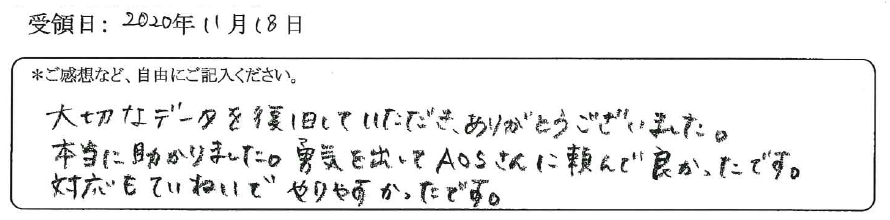 受領日: 2020年11月18日
*ご感想など、自由にご記入ください。
大切なデータを復旧していただき、ありがとうございました。
本当に助かりました。勇気を出してAOSさんに頼んで良かったです。
対応もていねいでやりやすかったです。